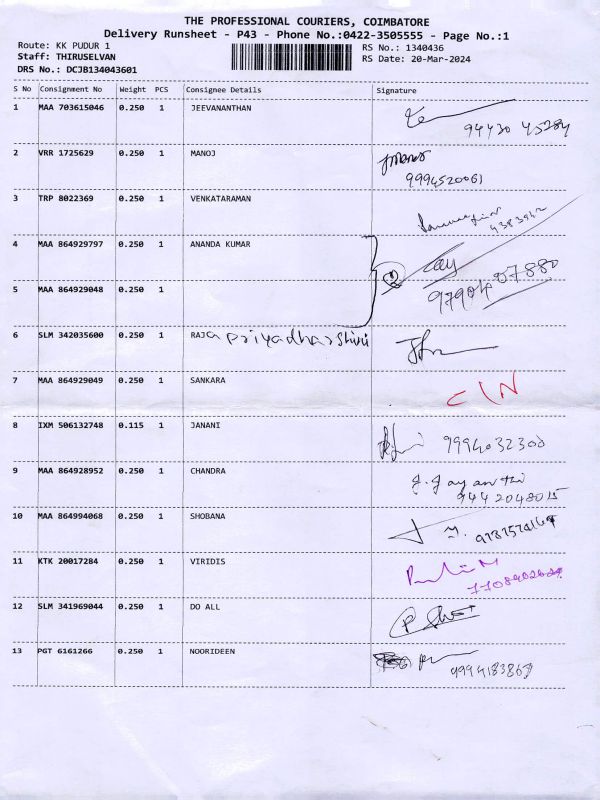 THE PROFESSIONAL COURIERS, COIMBATORE
Delivery Runsheet - P43 - Phone No.:0422-3505555 - Page No.:1
Route: KK PUDUR 1 RS No.: 1340436
Staff: THIRUSELVAN RS Date: 20-Mar-2024
DRS No.: DCJB134043601
S No Consignment No Weight PCS Consignee Details Signature
1 MAA 703615046 0.250 1 JEEVANANTHAN
94430 45284
2 VRR 1725629 0.250 1 MANOJ
9994520061
3 TRP 8022369 0.250 1 VENKATARAMAN
4 MAA 864929797 0.250 1 ANANDA KUMAR
5 MAA 864929048 0.250 1
9790407880
6 SLM 342035600 0.250 1 RAJA priyadharshini
7 MAA 864929049 0.250 1 SANKARA
C/N
8 IXM 506132748 0.115 1 JANANI
9994032300
9 MAA 864928952 0.250 1 CHANDRA
J. Jayanthi
9442048015
10 MAA 864994068 0.250 1 SHOBANA
11 KTK 20017284 0.250 1 VIRIDIS
12 SLM 341969044 0.250 1 DO ALL
13 PGT 6161266 0.250 1 NOORIDEEN
9994183868